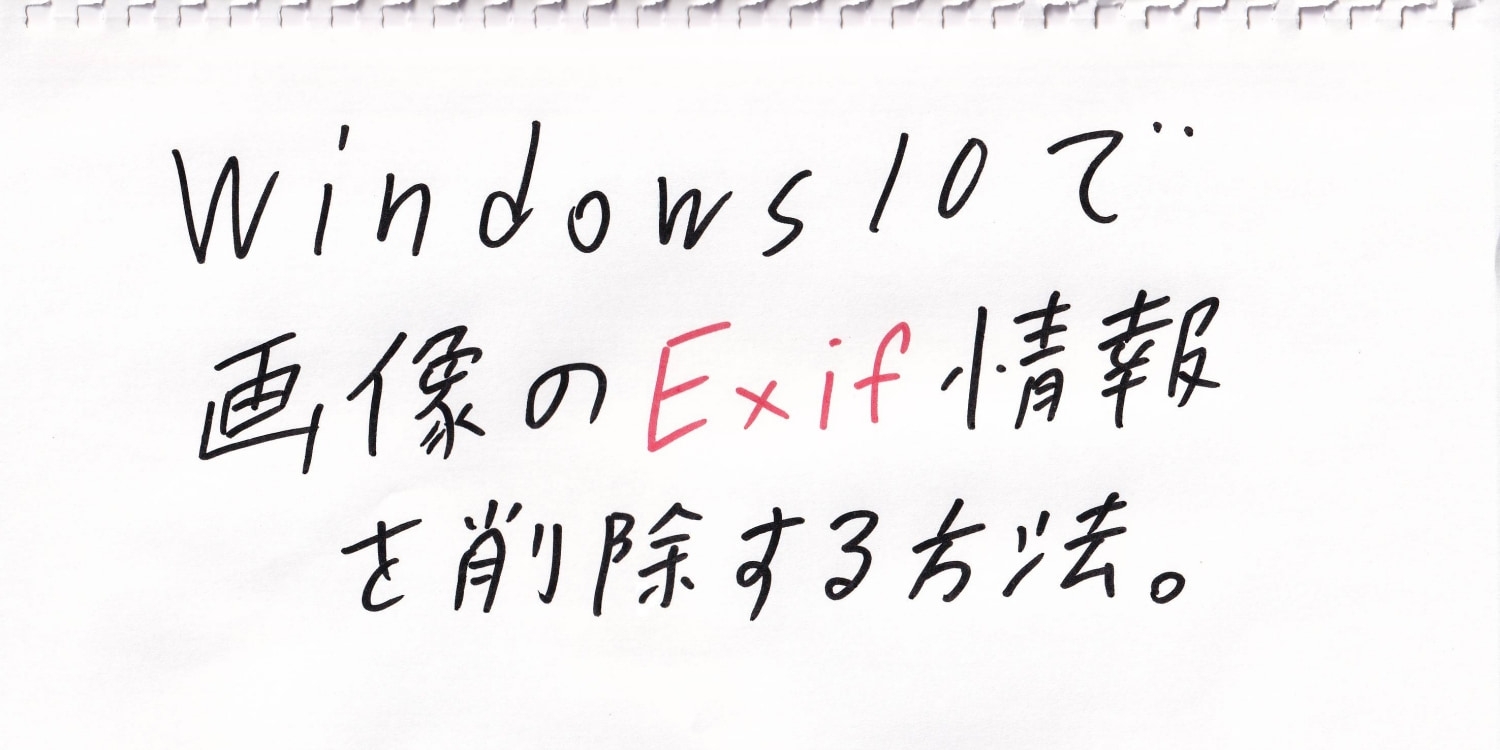 Windows10で
画像のExif情報
を削除する方法。